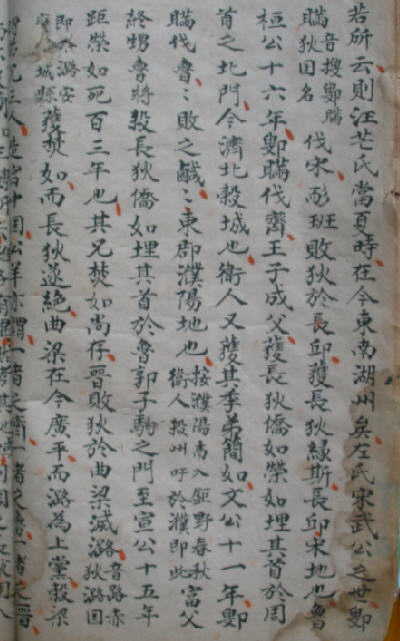 若所云則汪芒氏當夏時在今東南湖州矣左氏宋武公之世鄋
瞞音搜鄋瞞狄国名伐宋耏班敗狄於長邱獲長狄緣斯長邱宋地也魯
桓公十六年鄋瞞伐齊王子成父獲長狄僑如榮如埋其首於周
首之北門今濟北穀城也衛人又獲其季弟簡如文公十一年鄋
瞞伐魯〻敗之鹹〻東郡濮陽地也按濮陽南入鉅野春秋衛人殺州吁於濮即此富父
終甥魯將殺長狄僑如埋其首於魯郭子駒之門至宣公十五年
距榮如死百三年也其兄焚如尚存晋敗狄於曲梁滅潞音路赤狄潞国
即今潞安城縣獲焚如而長狄遂絕曲梁在今廣平而潞為上黨穀梁
中国公羊亦謂一者之齊一者之魯一者之晋